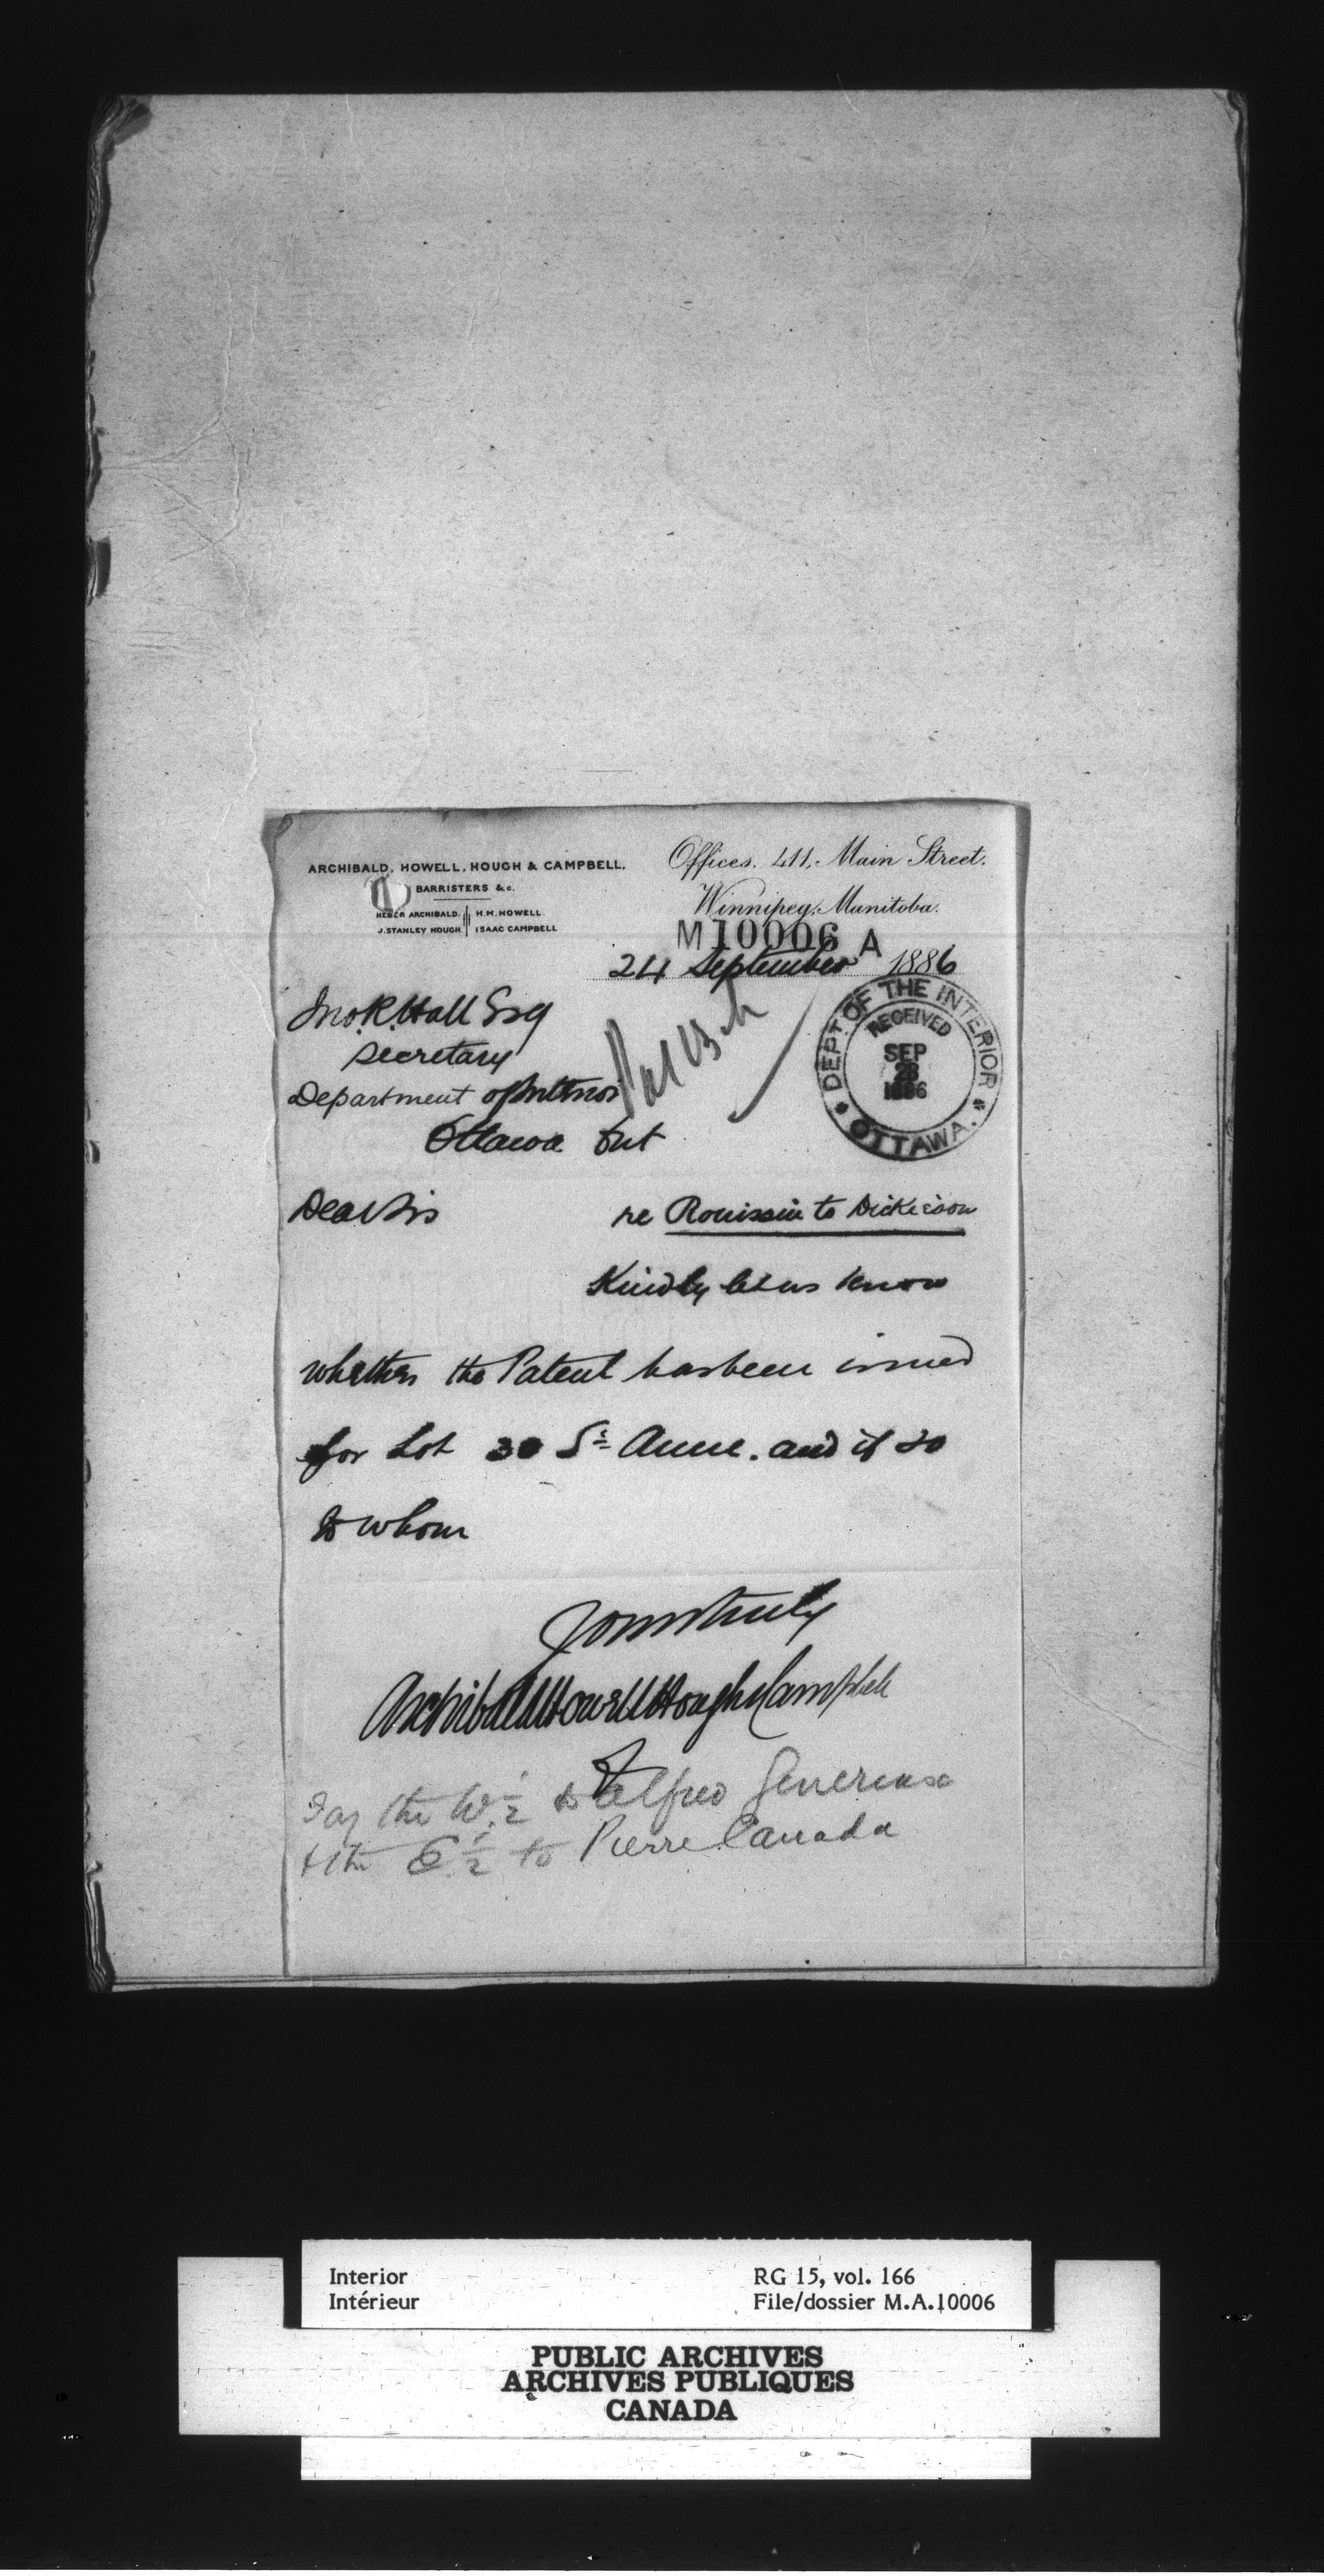 ARCHIBALD, HOWELL, HOUGH & CAMPBELL.
BARRISTERS &c.
HEBER ARCHIBALD. H.M. HOWELL.
J. STANLEY HOUGH. ISAAC CAMPBELL
Offices. 411, Main Street.
Winnipeg, Manitoba.
M 10006 A
24 September 1886
Jno. R. Hall Esq
Secretary
Department of Interior
Ottawa Ont
DEPT. OF THE INTERIOR
RECEIVED
SEP
28
1886
OTTAWA.
Dear Sir
re Rouissin to Dickieson
Kindly let us know
whether the Patent has been issued
for Lot 30 St Anne. and if so
to whom
Yours truly
Archibald Howell Hough & Campbell
Say the W. ½ to Alfred Genereux
& the E ½ to Pierre Canada
Interior
Intérieur
RG 15, vol. 166
File/dossier M.A.10006
PUBLIC ARCHIVES
ARCHIVES PUBLIQUES
CANADA